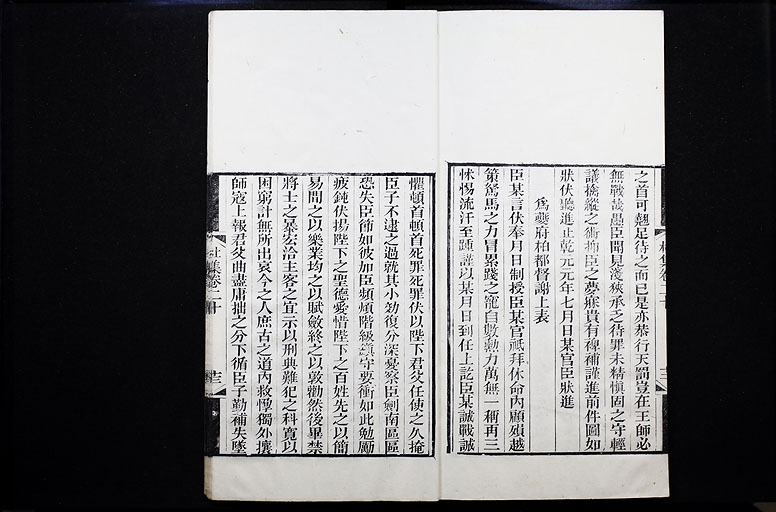 之首可翹足待之而已是亦恭行天罰豈在王師必
無戰哉愚臣聞見淺狹承乏待罪未精慎固之守輕
議擒縱之術抑臣之夢寐貴有裨補謹進前件圖如
狀伏聽進止乾元元年七月日某官臣狀進
為夔府柏都督謝上表
臣某言伏奉月日制授臣某官祗拜休命內顧殞越
策駑馬之力冒累踐之寵自數勳力萬無一稱再三
怵惕流汗至踵謹以某月日到任上訖臣某誠戰誠
懼頓首頓首死罪死罪伏以陛下君父任使之久掩
臣子不逮之過就其小効復分深憂察臣劍南區區
恐失臣節如彼加臣頻煩階級鎮守要衝如此勉勵
疲鈍伏揚陛下之聖德愛惜陛下之百姓先之以簡
易間之以樂業均之以賦斂終之以敦勸然後畢禁
將士之暴宏洽主客之宜示以刑典難犯之科寬以
困窮計無所出哀今之人庶古之道內救惸獨外攘
師寇上報君父曲盡庸拙之分下循臣子勤補失墜
杜集卷二十